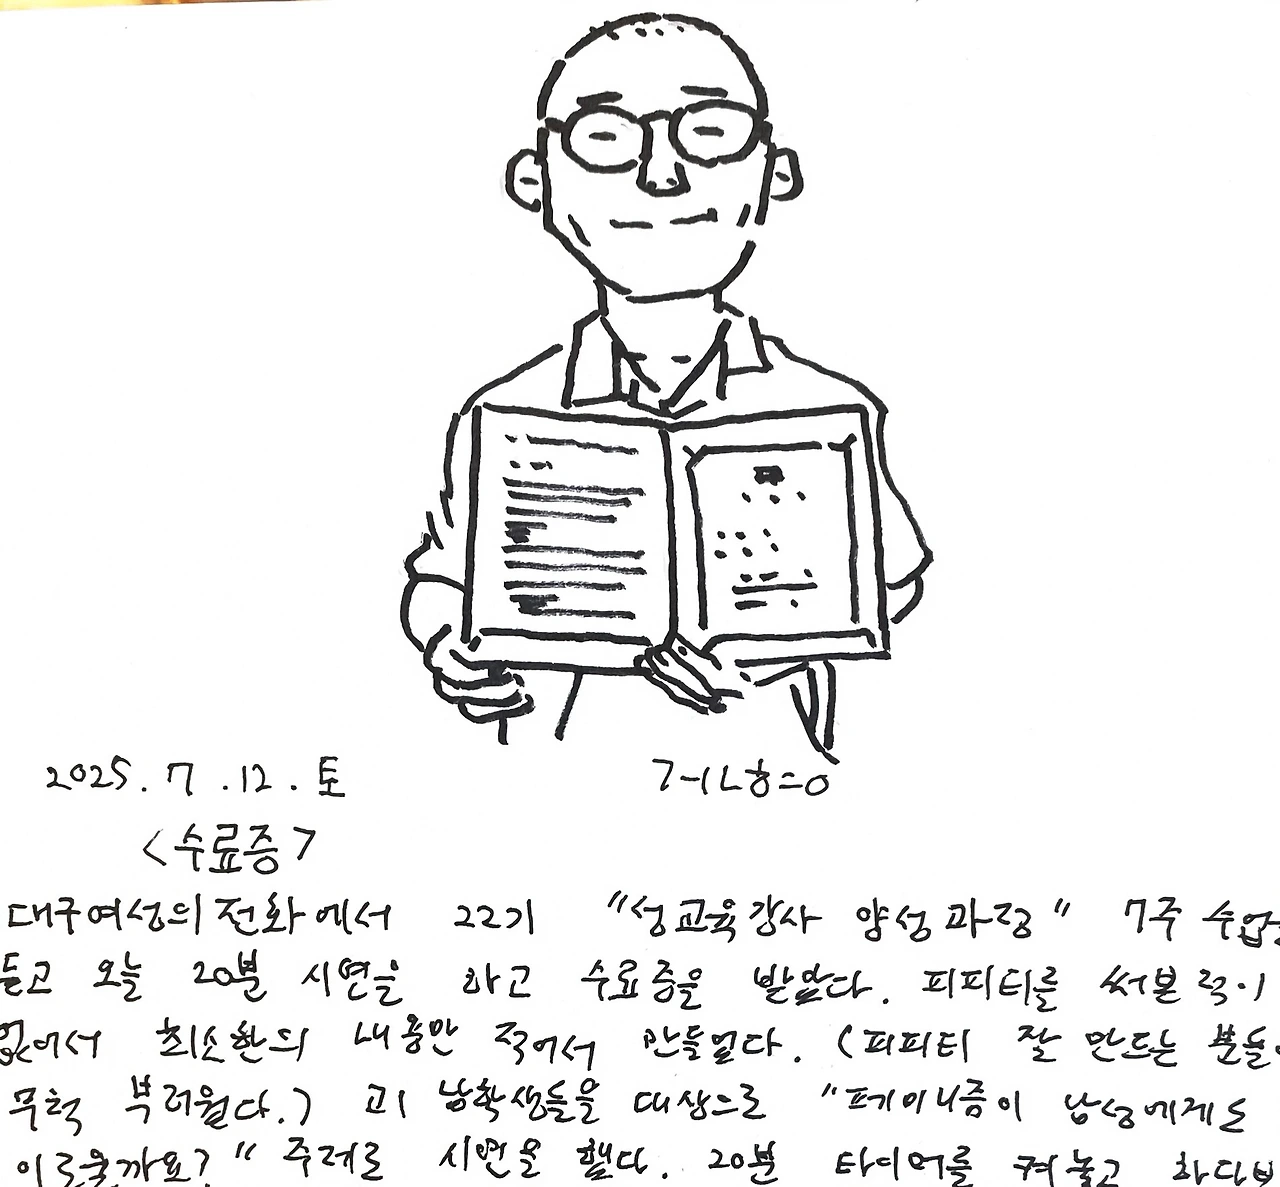 2025. 7. 12. 토
ㄱㅓㄴㅎㅡㅇ
<수료증>
대구여성의전화에서 22기 "성교육강사 양성과정" 7주 수업을
듣고 오늘 20분 시연을 하고 수료증을 받았다. 피피티를 써본 적이
없어서 최소한의 내용만 적어서 만들었다. (피피티 잘 만드는 분들이
무척 부러웠다.) 고1 남학생들을 대상으로 "페미니즘이 남성에게도
이로울까요?" 주제로 시연을 했다. 20분 타이머를 켜놓고 하다보